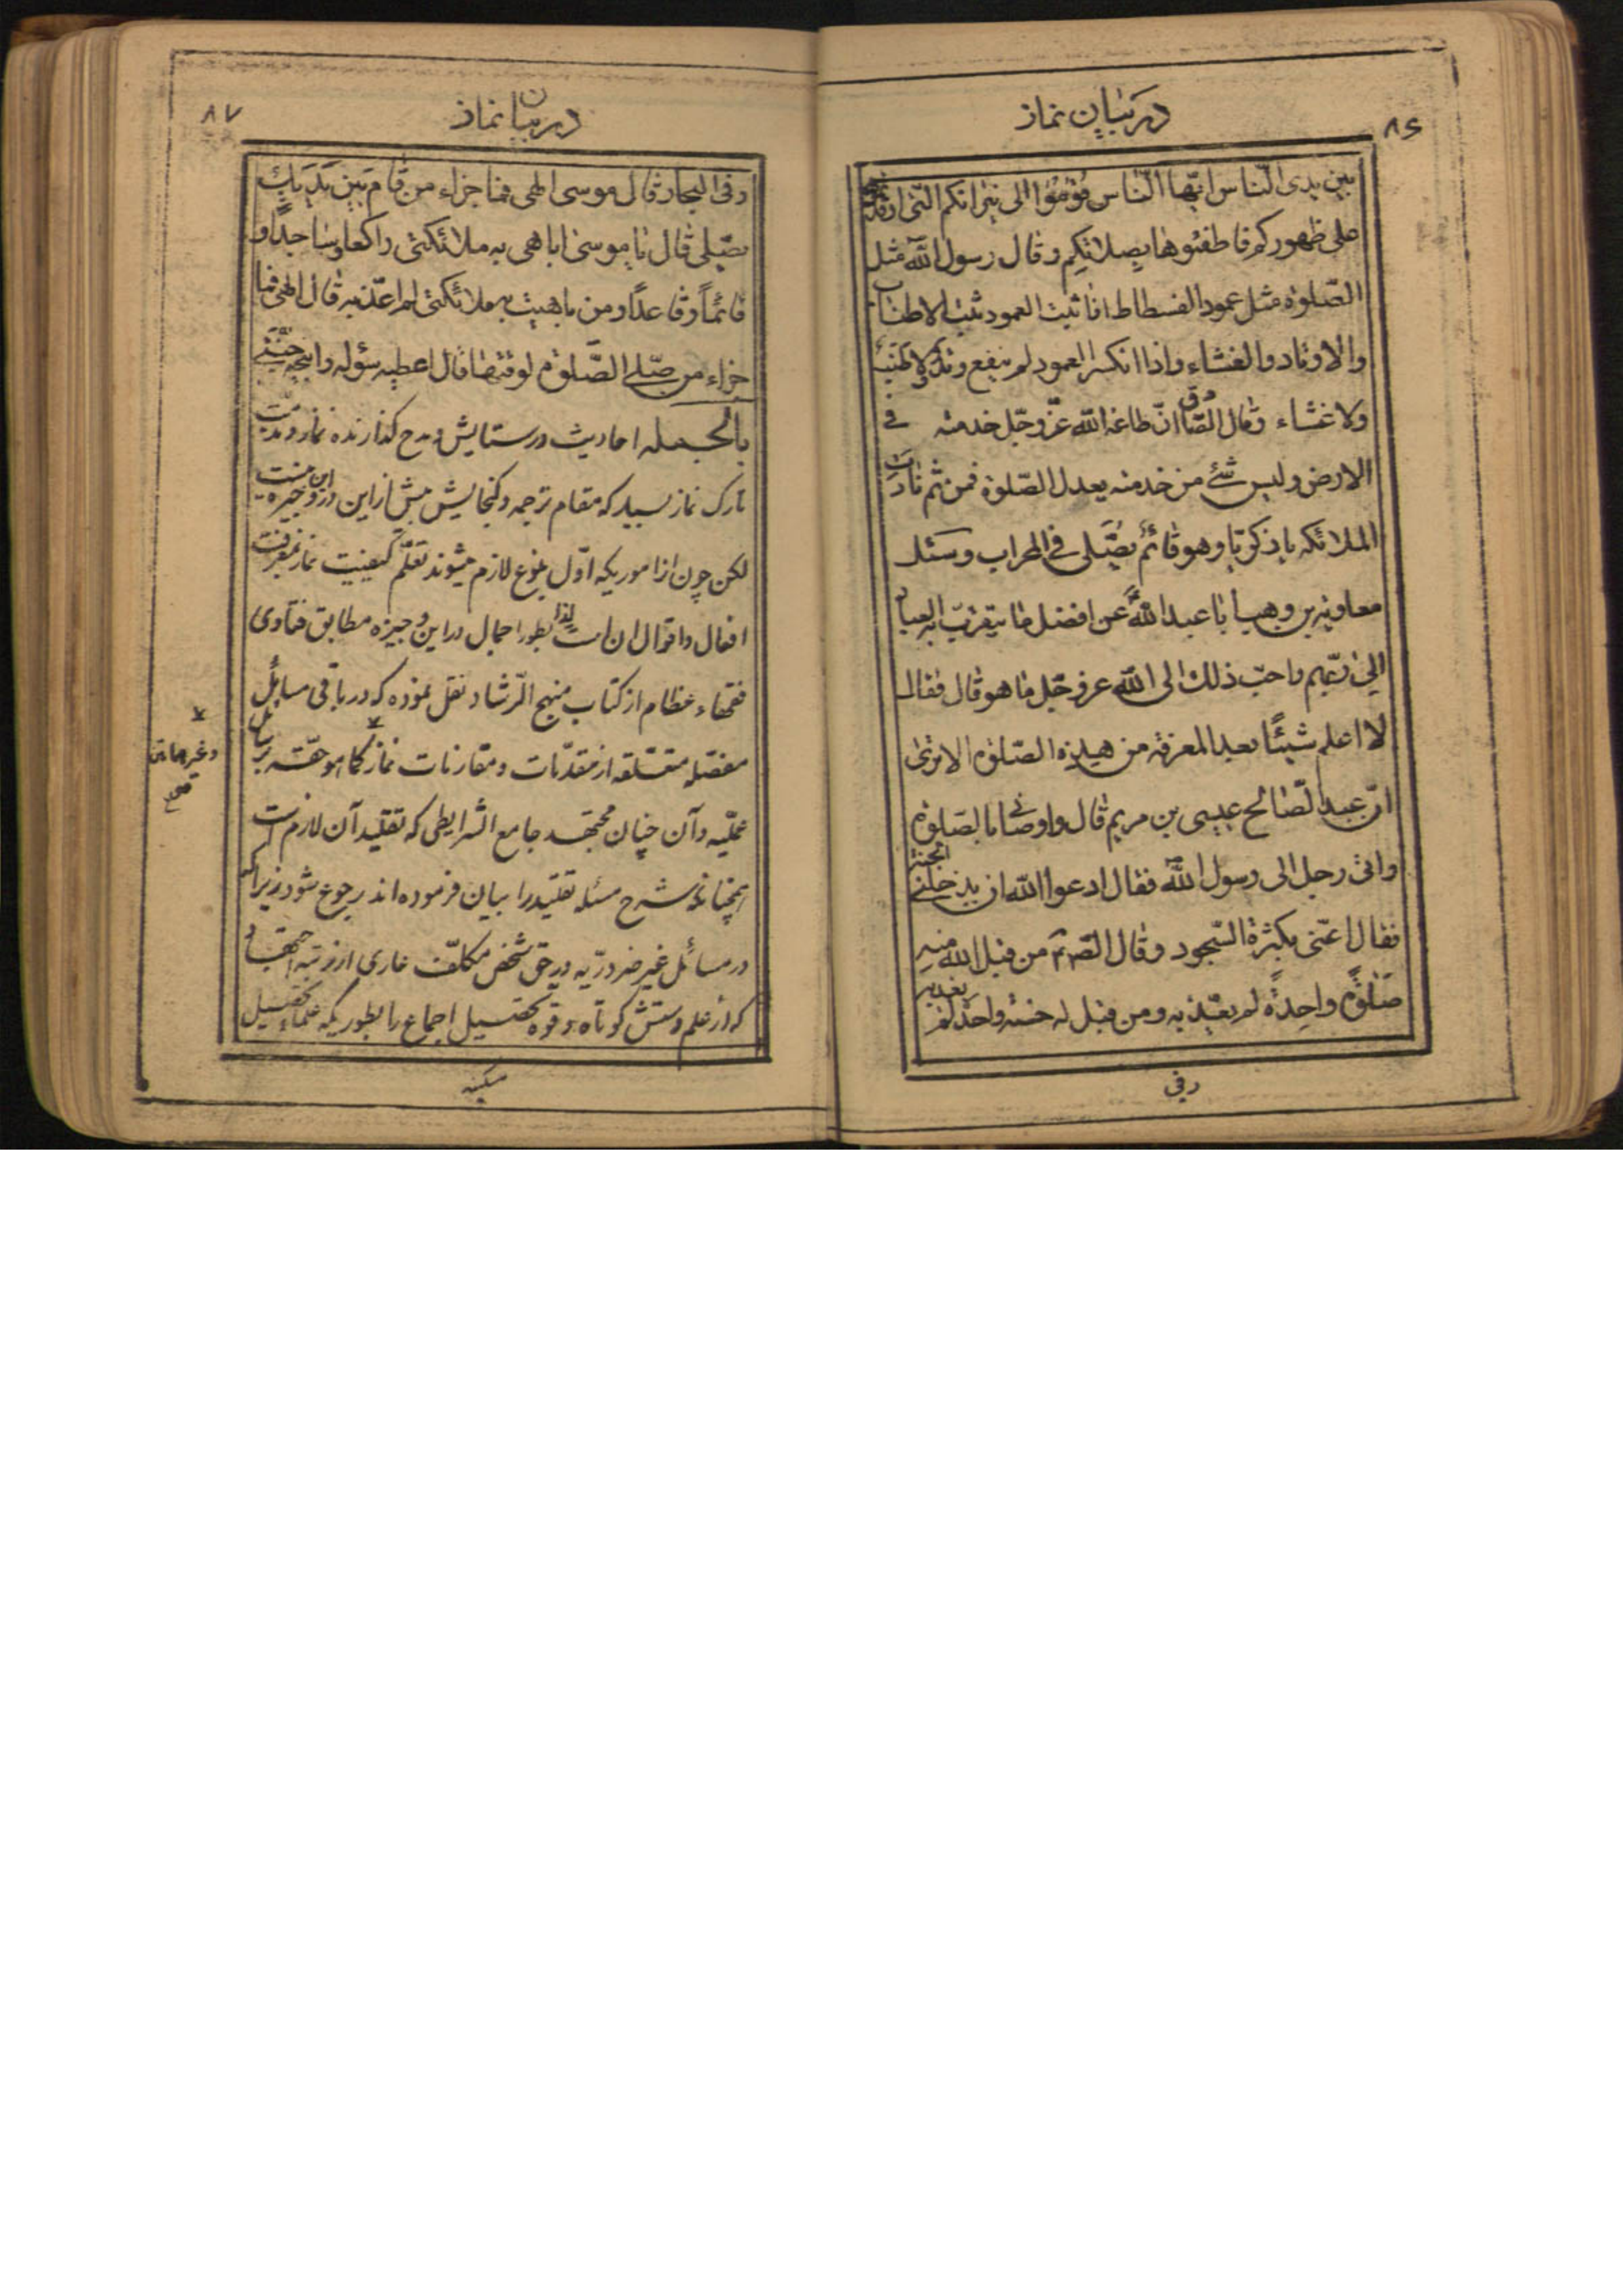 در بیان نماز
٨٦
بین یدی النّاس ایّها النّاس قوموا الی نیرانکم الّتی اوقدتموها
علی ظهورکم فاطفئوها بصلاتکم وقال رسول اللّه مثل
الصّلوة مثل عمود الفسطاط اذا ثبت العمود ثبت الاطناب
والاوتاد والغشاء واذا انکسر العمود لم ینفع وتد ولا طنب
ولا غشاء وقال الصّادق انّ طاعة اللّه عزّ وجلّ خدمته فی
الارض ولیس شئ من خدمته یعدل الصّلوة فمن ثم نادت
الملائکه یا ذکریّا وهو قائم یصّلی فی المحراب وسئل
معاویة بن وهب ابا عبد اللّه عن افضل ما یتقرّب به العباد
الی ربّهم واحبّ ذلک الی اللّه عز وجّل ما هو قال فقال
لا اعلم شیئًا بعد المعرفة من هذه الصّلوة الا تری
انّ عبد الصّالح عیسی بن مریم قال واوصانی بالصّلوة
واتی رجل الی رسول اللّه فقال ادعوا اللّه ان یدخلنی الجنة
فقال اعنّی بکثرة السّجود وقال الصّ من قبل اللّه منه
صلوة واحدة لم یعذّبه ومن قبل له حسنه واحدة لم یعذبه
وفی
در بیان نماز
٨٧
وفی البحار قال موسی الهی فما جزاء من قام بین یدیک
یصّلی قال یا موسی اباهی به ملائکتی راکعا وساجدًا و
قائمًا وقاعدًا ومن باهیت به ملائکتی لم اعذّبه قال الهی فما
جزاء من صلّی الصّلوة لوقتها قال اعطیه سؤله وابیحه جنّتی
بالجمله احادیث در ستایش ومدح گذارنده نماز ومذمّت
تارک نماز بسیار که مقام ترجمه و گنجایش بیش از این در این وجیزه نیست
لکن چون از اموریکه اوّل بلوغ لازم میشوند تعلّم کیفیت نماز ومعرفت
افعال واقوال ان است لذا بطور اجمال در این وجیزه مطابق فتاوی
فقهاء عظام از کتاب منهج الرّشاد نقل نموده که در باقی مسایل
مفصّله متعّلقه از مقدّمات ومقارنات نماز کما هو حقّه برسائل
وغیرهما من
عملیّه وآن چنان مجتهد جامع الشرایطی که تقلید آن لازم است
همچنانکه شرح مسئله تقلید را بیان فرموده اند رجوع شود زیرا که
در مسائل غیر ضروریّه در حق شخص مکلّف عاری از رتبه اجتهاد
که از علم دستش کوتاه و قوه تحصیل اجماع را بطوریکه علماء تحصیل
میکنند